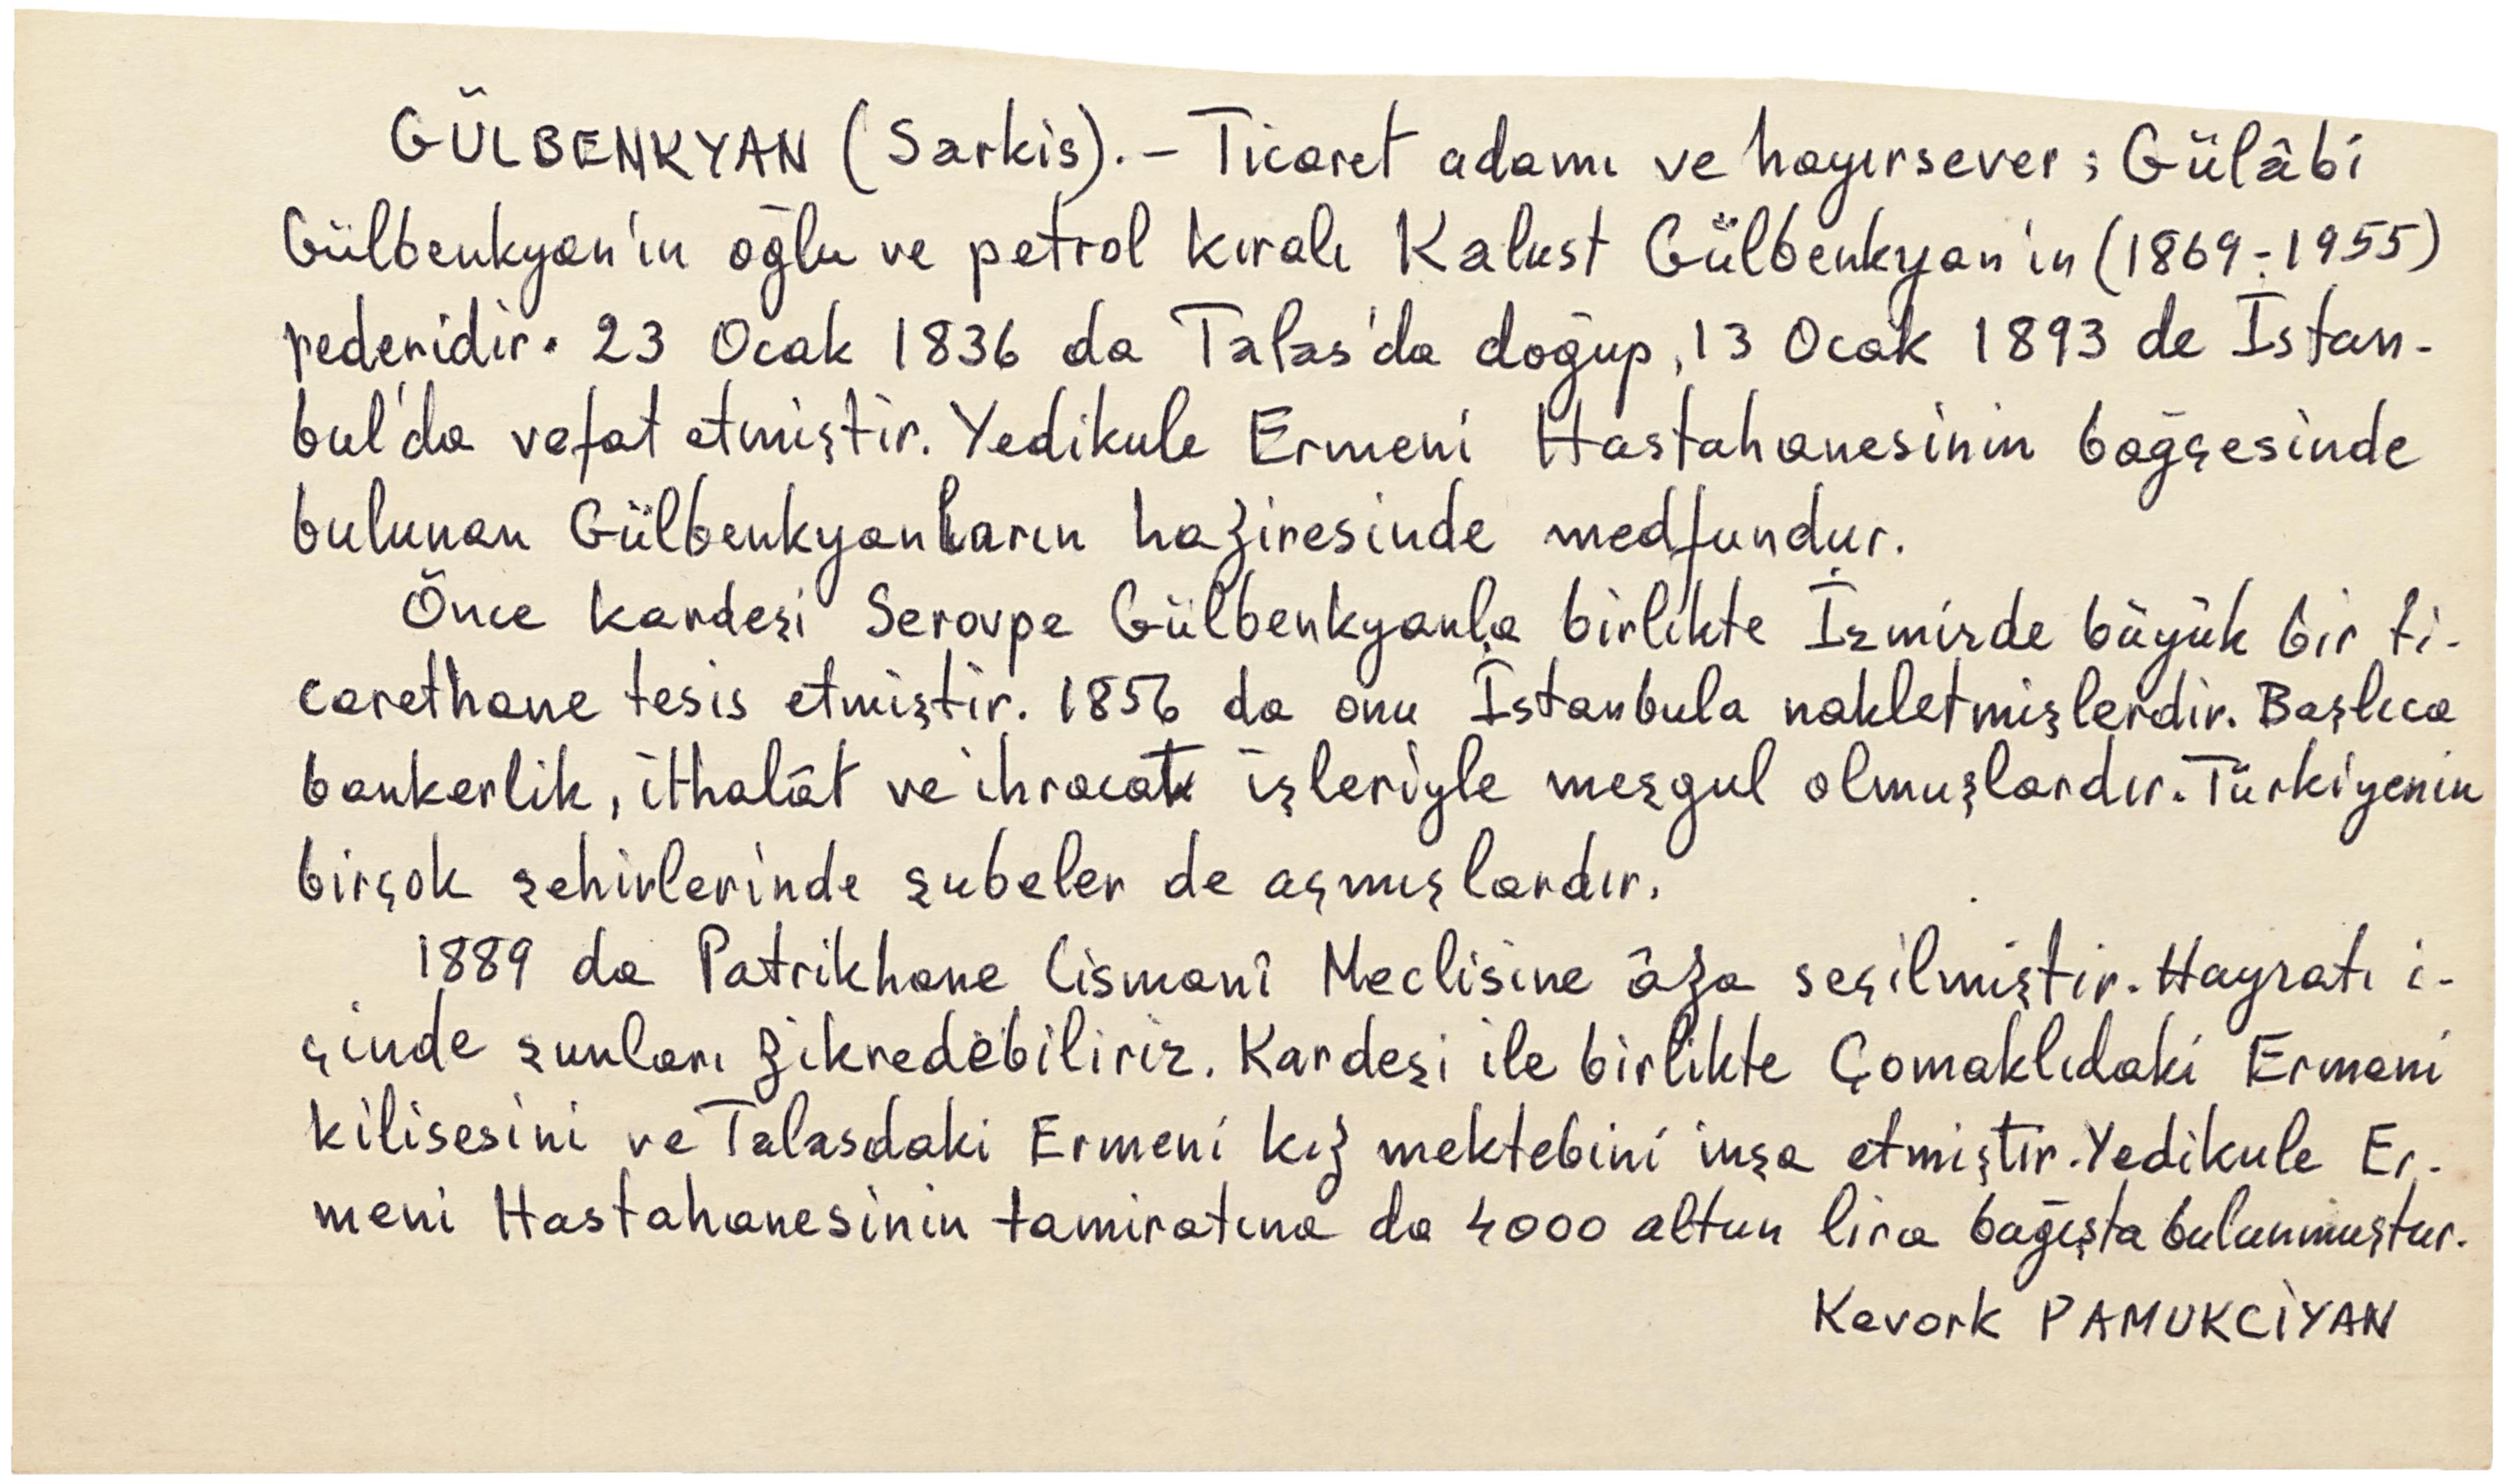 GÜLBENKYAN (Sarkis).- Ticaret adamı ve hayırsever; Gülâbi
Gülbenkyan'ın oğlu ve petrol kıralı Kalust Gülbenkyan'ın (1869-1955)
pederidir. 23 Ocak 1836 da Talas'da doğup, 13 Ocak 1893 de İstan-
bul'da vefat etmiştir. Yedikule Ermeni Hastahanesinin bağçesinde
bulunan Gülbenkyanların haziresinde medfundur.
Önce kardeşi Serovpe Gülbenkyanla birlikte İzmirde büyük bir ti-
carethane tesis etmiştir. 1856 da onu İstanbula nakletmişlerdir. Başlıca
bankerlik, ithalât ve ihracat işleriyle meşgul olmuşlardır. Türkiyenin
birçok şehirlerinde şubeler de açmışlardır.
1889 da Patrikhane Cismanî Meclisine âza seçilmiştir. Hayratı i-
çinde şunları zikredebiliriz. Kardeşi ile birlikte Çomaklıdaki Ermeni
kilisesini ve Talasdaki Ermeni kız mektebini inşa etmiştir. Yedikule Er-
meni Hastahanesinin tamiratına da 4000 altun lira bağışta bulunmuştur.
Kevork PAMUKCİYAN